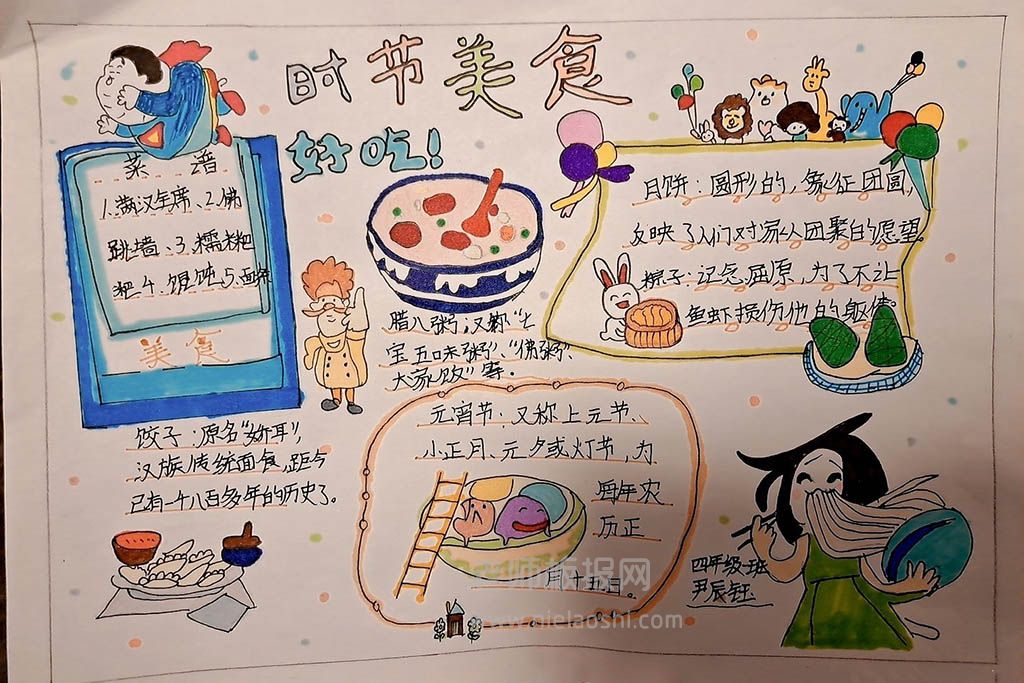 时节美食
好吃!
菜谱
1.满汉全席、2.佛
跳墙、3.糯糍
粑4.馄饨、5.面条
美食
腊八粥:又称"七
宝五味粥"、"佛粥"、
大家饭"等.
月饼:圆形的,象征团圆,
反映了人们对家人团聚的愿望。
粽子:记念屈原,为了不让
鱼虾损伤他的躯体。
饺子:原名"娇耳",
汉族传统面食,距今
已有一千八百多年的历史了。
元宵节:又称上元节、
小正月、元夕或灯节,为
每年农
历正
月十五日。
四年级一班
尹辰钰
老师板报网
www.qielaoshi.com